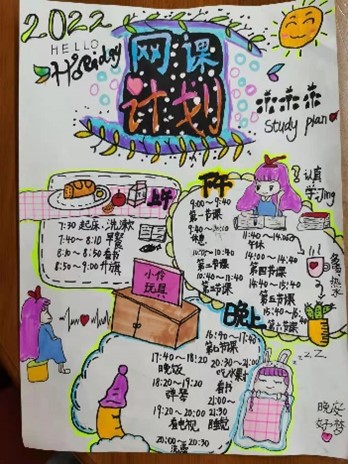 2022
HELLO
Holiday
网课
计划
Study plan
上午
7:30 起床、洗漱
7:40~8:10
早餐
8:10~8:50
看书
8:50~9:00 升旗
下午
9:00~9:40
第一节课
休息
第二节课
10:40~11:40
第三节课
午休
14:00~14:40
第四节课
14:40~15:40
第五节课
认真
学习ing
多喝
热水
小伶
玩具
晚上
16:40~17:40
第七节课
17:40~18:20
晚饭
18:20~19:20
弹琴
19:20~20:00
看电视
20:00~20:30
洗漱
20:30~21:00
吃水果
看书
21:00~
21:30
睡觉
晚安
好梦